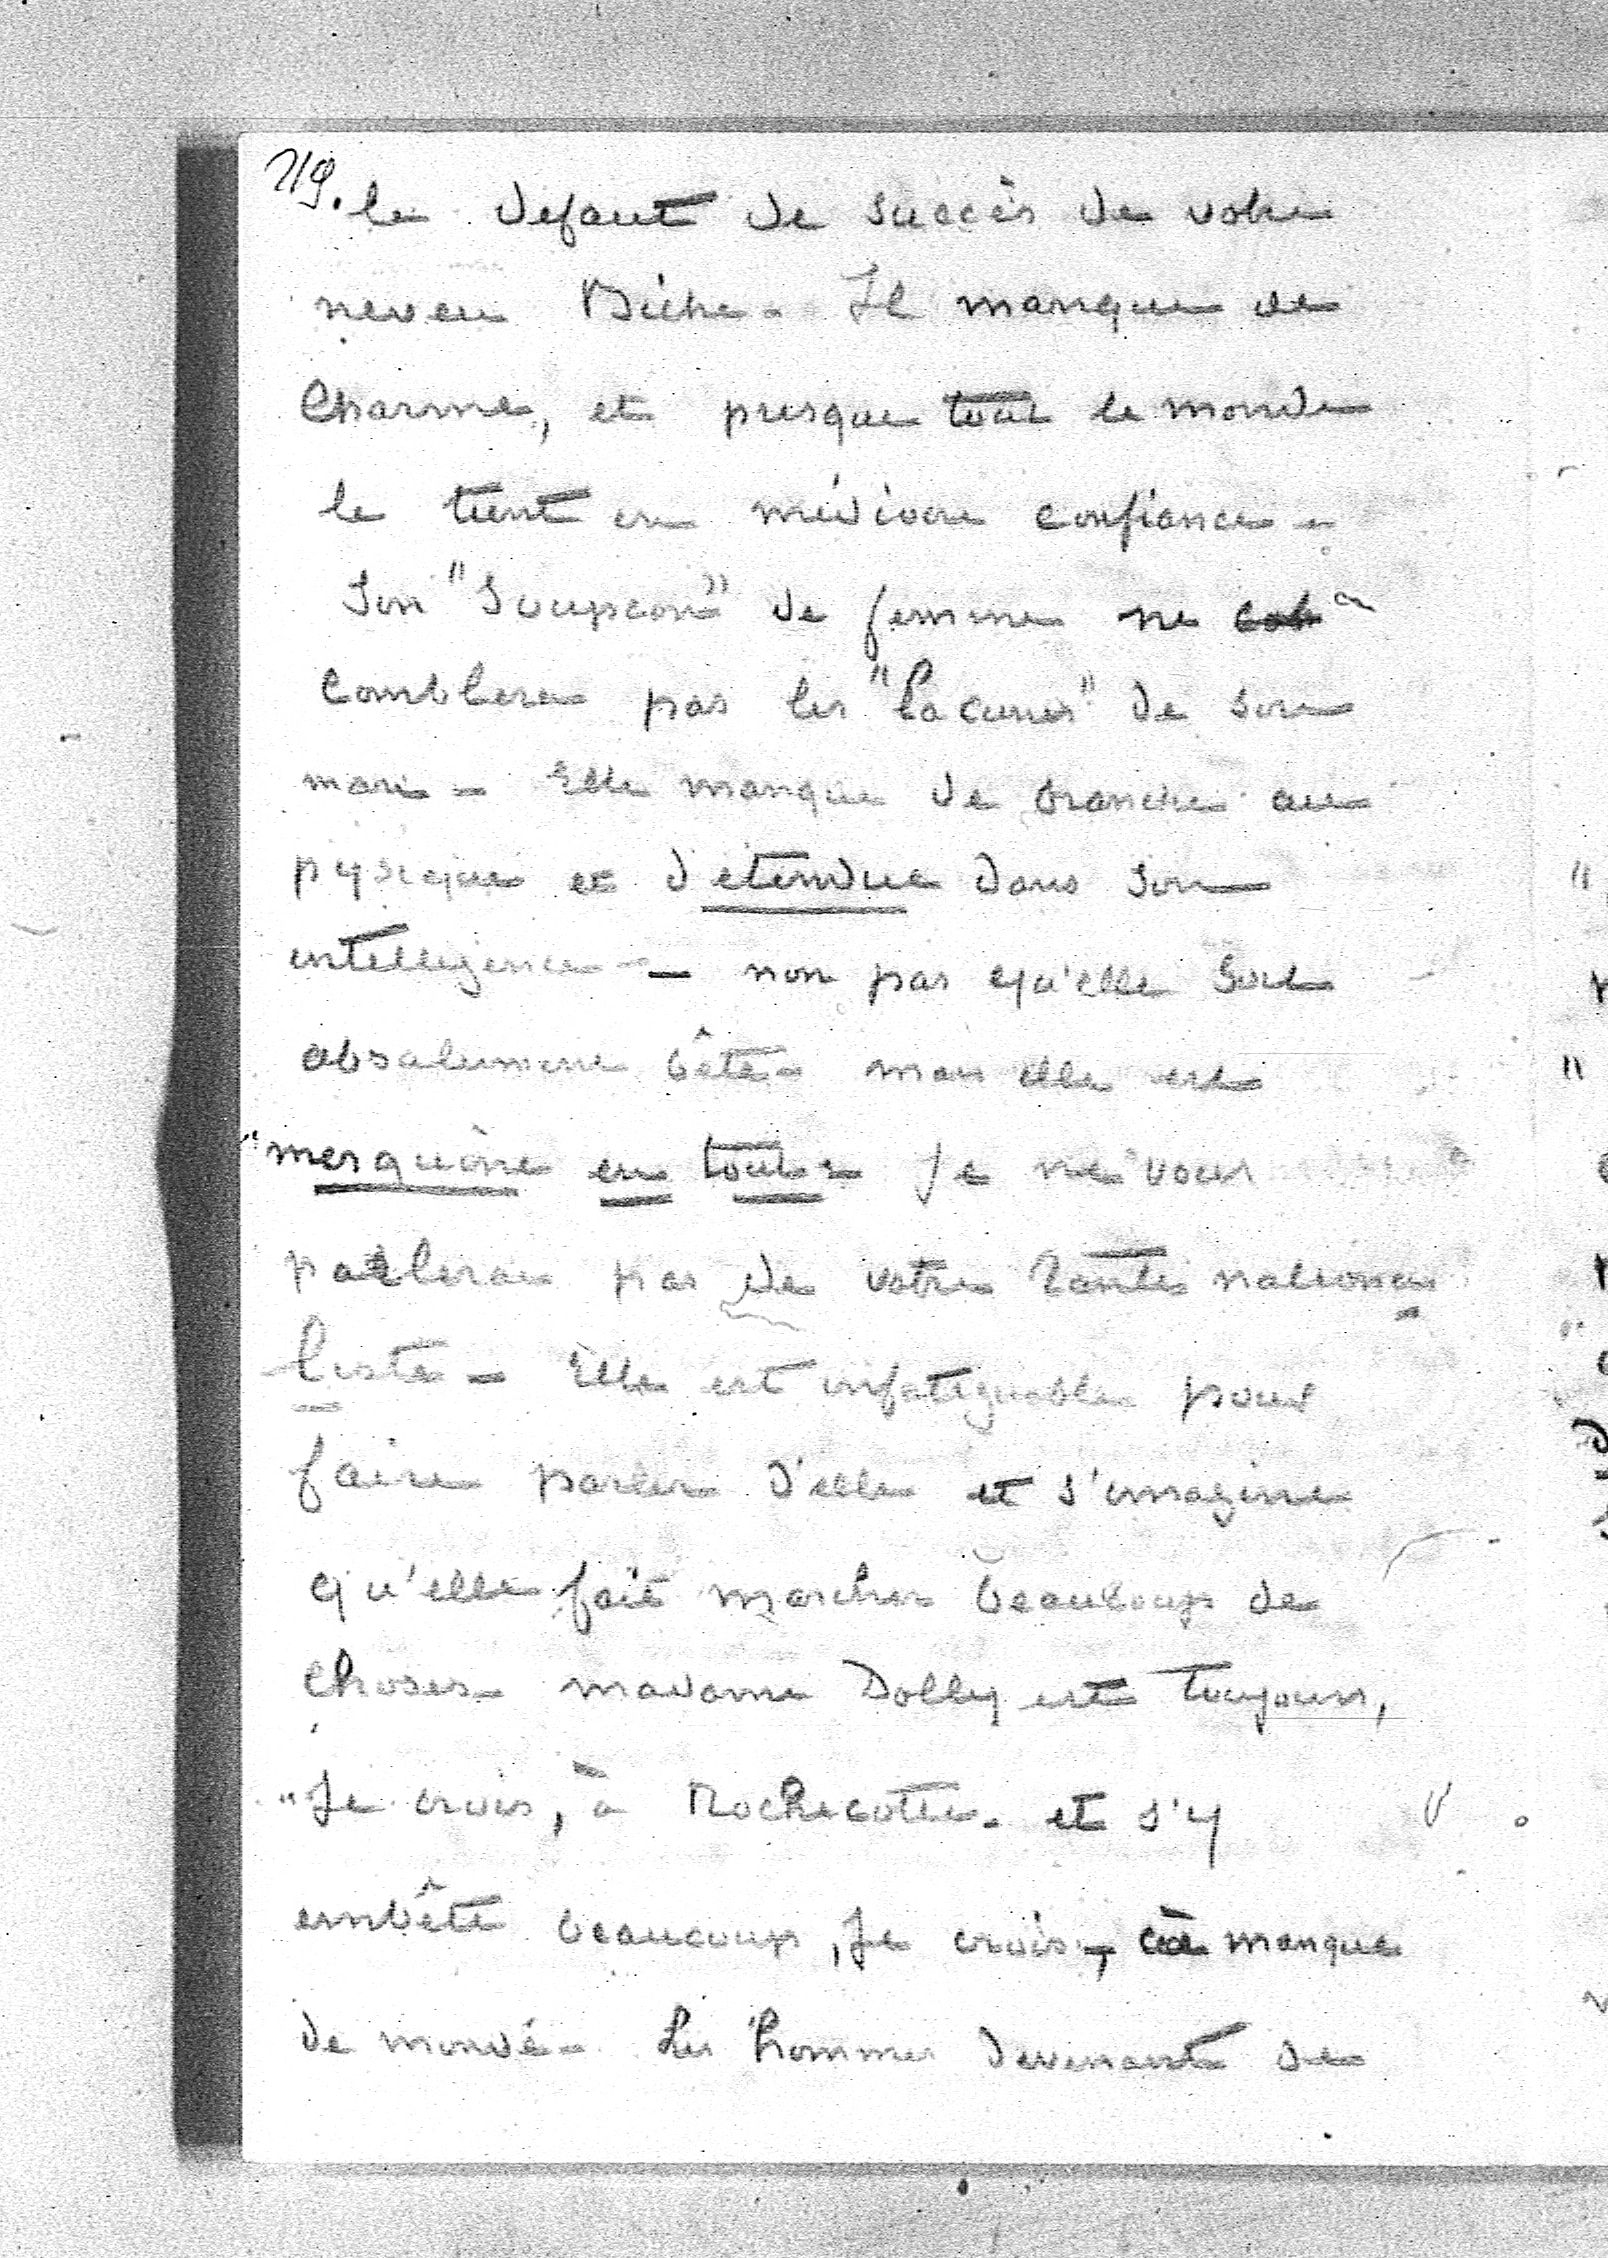 719. le defaut de succès de votre
neveu Biche - Il manque de
Charme, et presque tout le monde
le tient en médiocre confiance -
Son "Soupcon" de femme ne
comblera pas les "lacunes" de son
mari - Elle manque de branche au
pysique et d'etendue dans son
intelligence - non pas qu'elle soit
absolument bête - mais elle est
"mesquine en tout - Je ne vous
parlerai pas de votre Tante nationa
liste - Elle est infatiguable pour
faire parler d'elle et s'imagine
qu'elle fait marcher beaucoup de
choses - madame Dolly est toujours,
"Je crois, à Rochecotte - et s'y
embête beaucoup, Je crois, manque
de monde - Les hommes devenant de